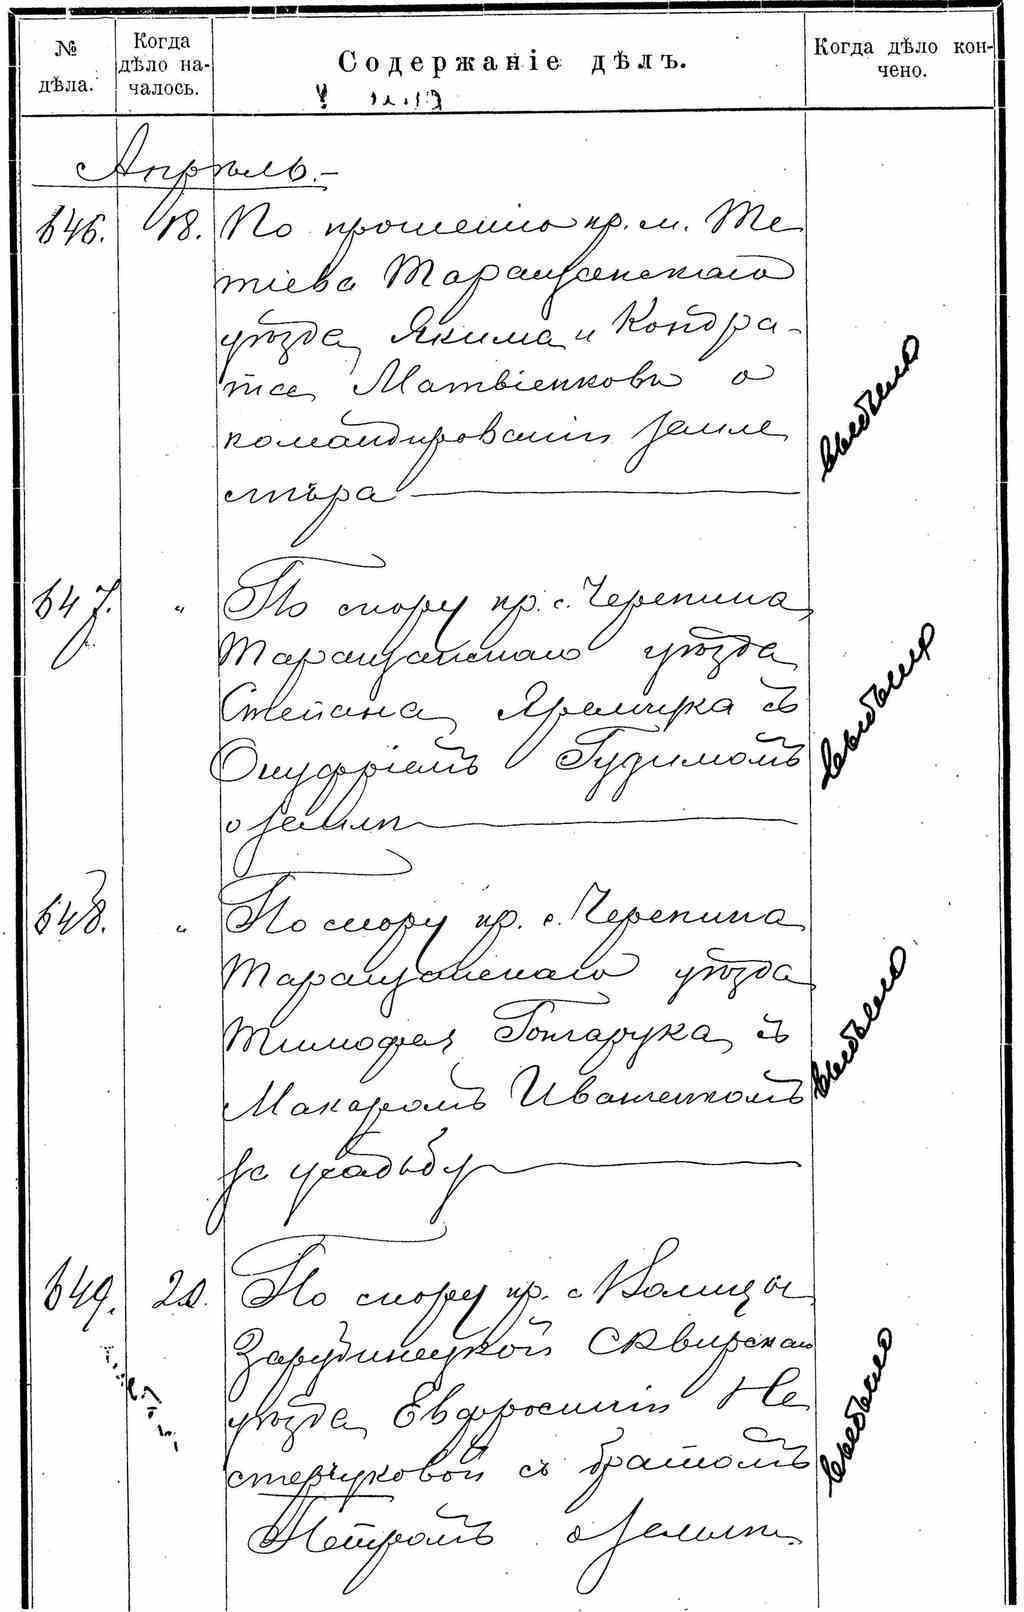 № дѣла.
Когда дѣло началось.
Содержаніе дѣлъ.
Когда дѣло кончено.
Апрѣль.-
646. 18. По прошенію кр. м. Те
тіева Таращанскаго
уѣзда Якима и Кондра-
та Матвіенковъ о
командированіи земле
мѣра
выбыло
647. " По спору кр. с. Черепина
Таращанскаго уѣзда
Степана Яремчука съ
Онуфріемъ Гудимомъ
о землѣ
выбыло
648. " По спору кр. с. Черепина
Таращанскаго уѣзда
Тимофея Гончарука съ
Макаромъ Иващенкомъ
за усадьбу
выбыло
649. 20. По спору кр. с. Волицы
Зарубинецкой Сквирскаго
уѣзда Евфросиніи Не
стерчуковой съ братомъ
Петромъ о землѣ.
выбыло